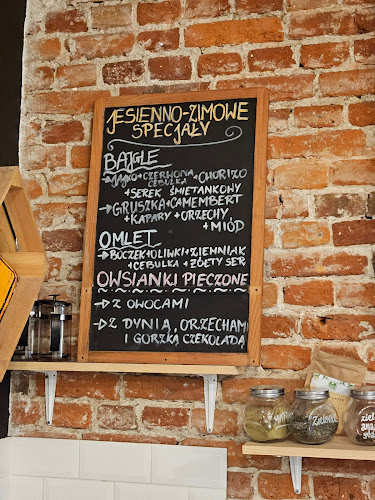 JESIENNO-ZIMOWE
SPECJAŁY
BAJGLE
→JAJKO+CZERWONA+CHORIZO
CEBULKA
+SEREK ŚMIETANKOWY
→GRUSZKA+CAMEMBERT
+KAPARY+ORZECHY
+MIÓD
OMLET
→BOCZEK+OLIWKI+ZIEMNIAK
+CEBULKA+ŻÓŁTY SER
OWSIANKI PIECZONE
→Z OWOCAMI
→Z DYNIĄ, ORZECHAMI
I GORZKĄ CZEKOLADĄ